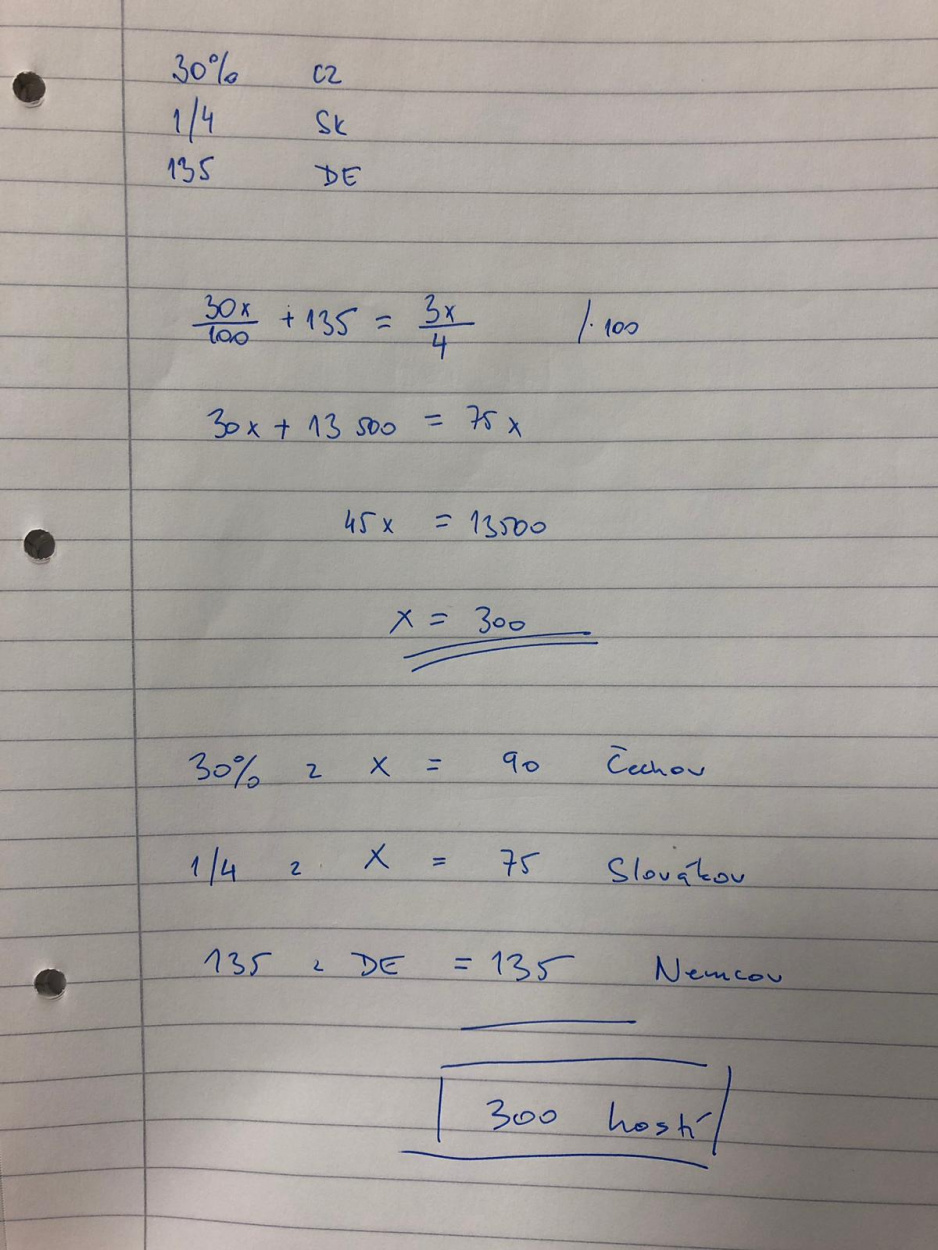 30% CZ
1/4 SK
135 DE
30x/100 + 135 = 3x/4 /·100
30x + 13 500 = 75x
45x = 13500
x = 300
30% z x = 90 Čechov
1/4 z x = 75 Slovákov
135 z DE = 135 Nemcov
300 hostí